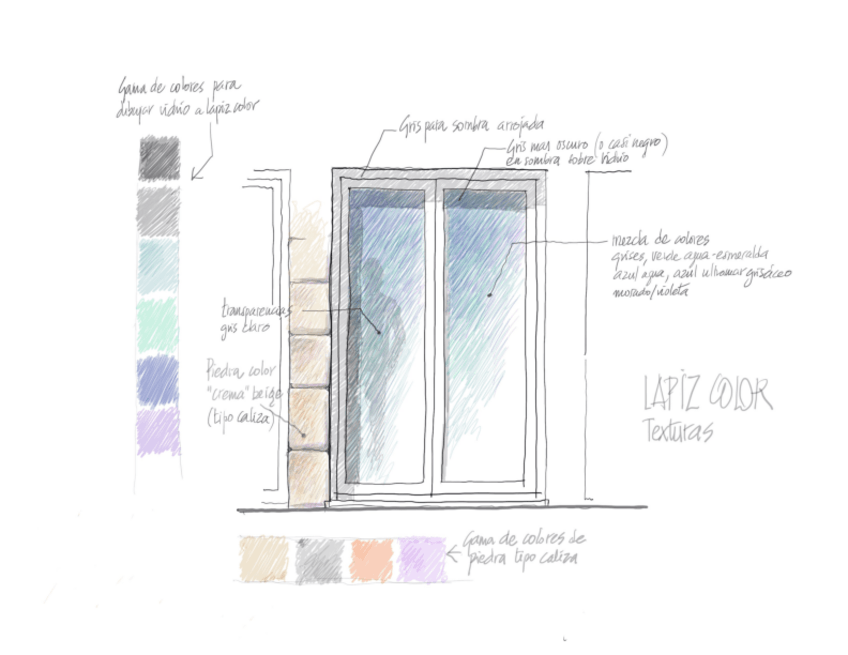 Gama de colores para
dibujar vidrio a lapiz color
Gris para sombra arrojada
Gris mas oscuro (o casi negro)
en sombra sobre vidrio
mezcla de colores
grises, verde agua-esmeralda
azul agua, azul ultramar grisáceo
morado/violeta
transparencias
gris claro
Piedra color
"crema" beige
(tipo caliza)
LAPIZ COLOR
Texturas
Gama de colores de
piedra tipo caliza